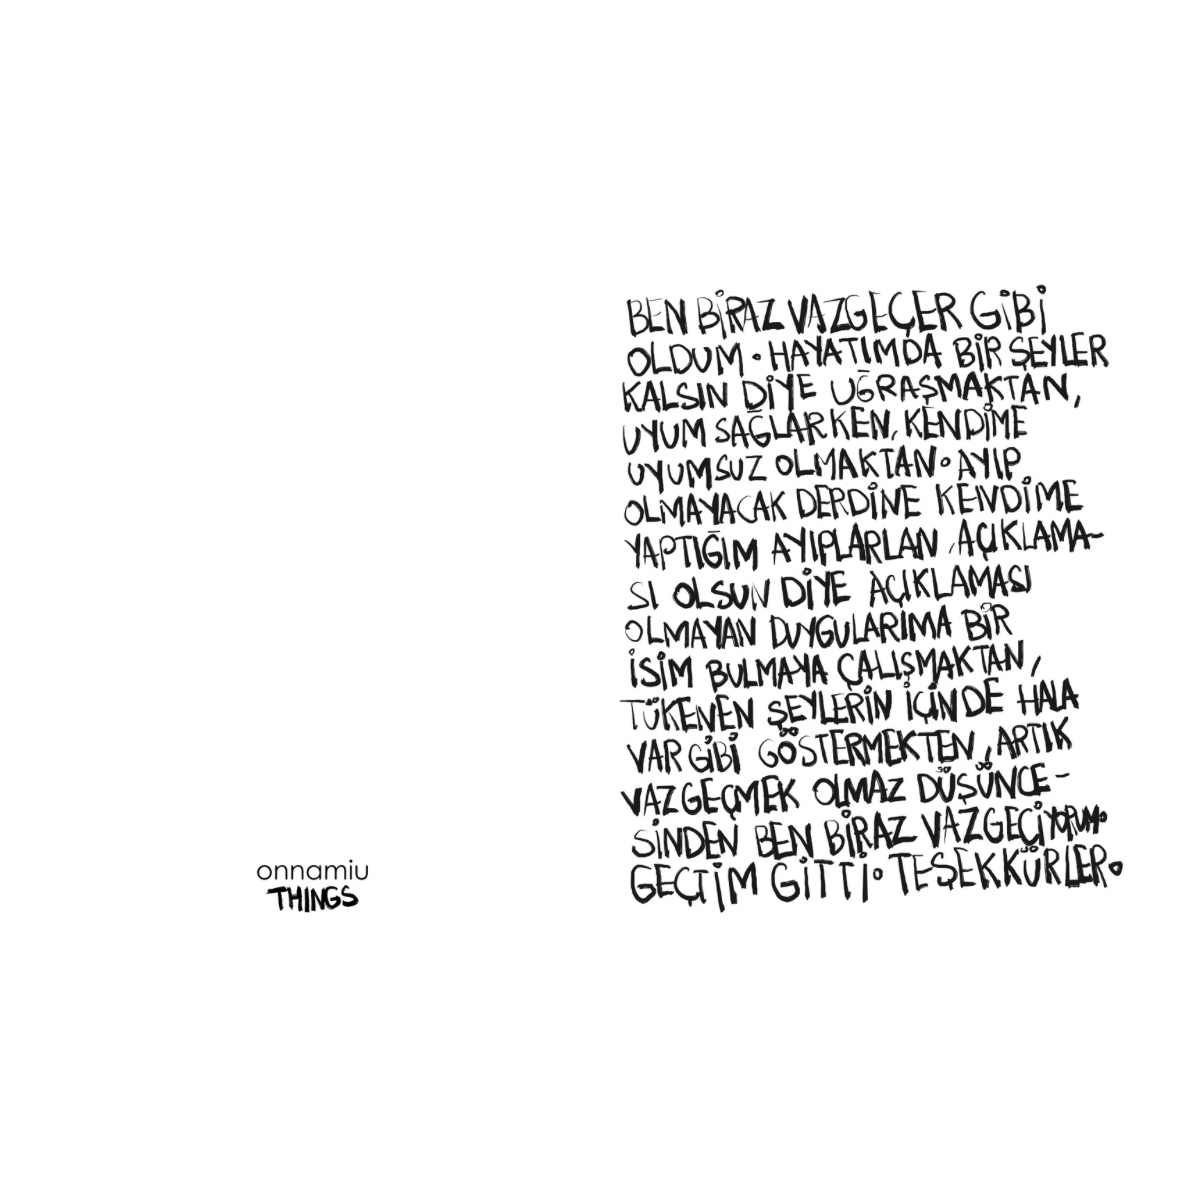 BEN BİRAZ VAZGEÇER GİBİ
OLDUM. HAYATIMDA BİR ŞEYLER
KALSIN DİYE UĞRAŞMAKTAN,
UYUM SAĞLARKEN, KENDİME
UYUMSUZ OLMAKTAN. AYIP
OLMAYACAK DERDİNE KENDİME
YAPTIĞIM AYIPLARLAN, AÇIKLAMA-
SI OLSUN DİYE AÇIKLAMASI
OLMAYAN DUYGULARIMA BİR
İSİM BULMAYA ÇALIŞMAKTAN,
TÜKENEN ŞEYLERİN İÇİNDE HALA
VAR GİBİ GÖSTERMEKTEN, ARTIK
VAZGEÇMEK OLMAZ DÜŞÜNCE-
SİNDEN BEN BİRAZ VAZGEÇİYORUM.
GEÇTİM GİTTİ. TEŞEKKÜRLER.
onnamiu
THINGS